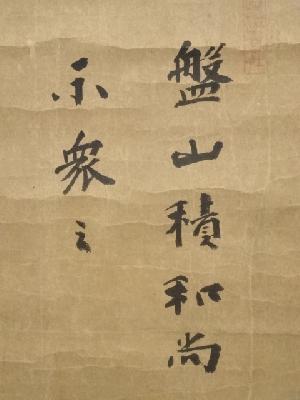 盤山積和尚
示衆之